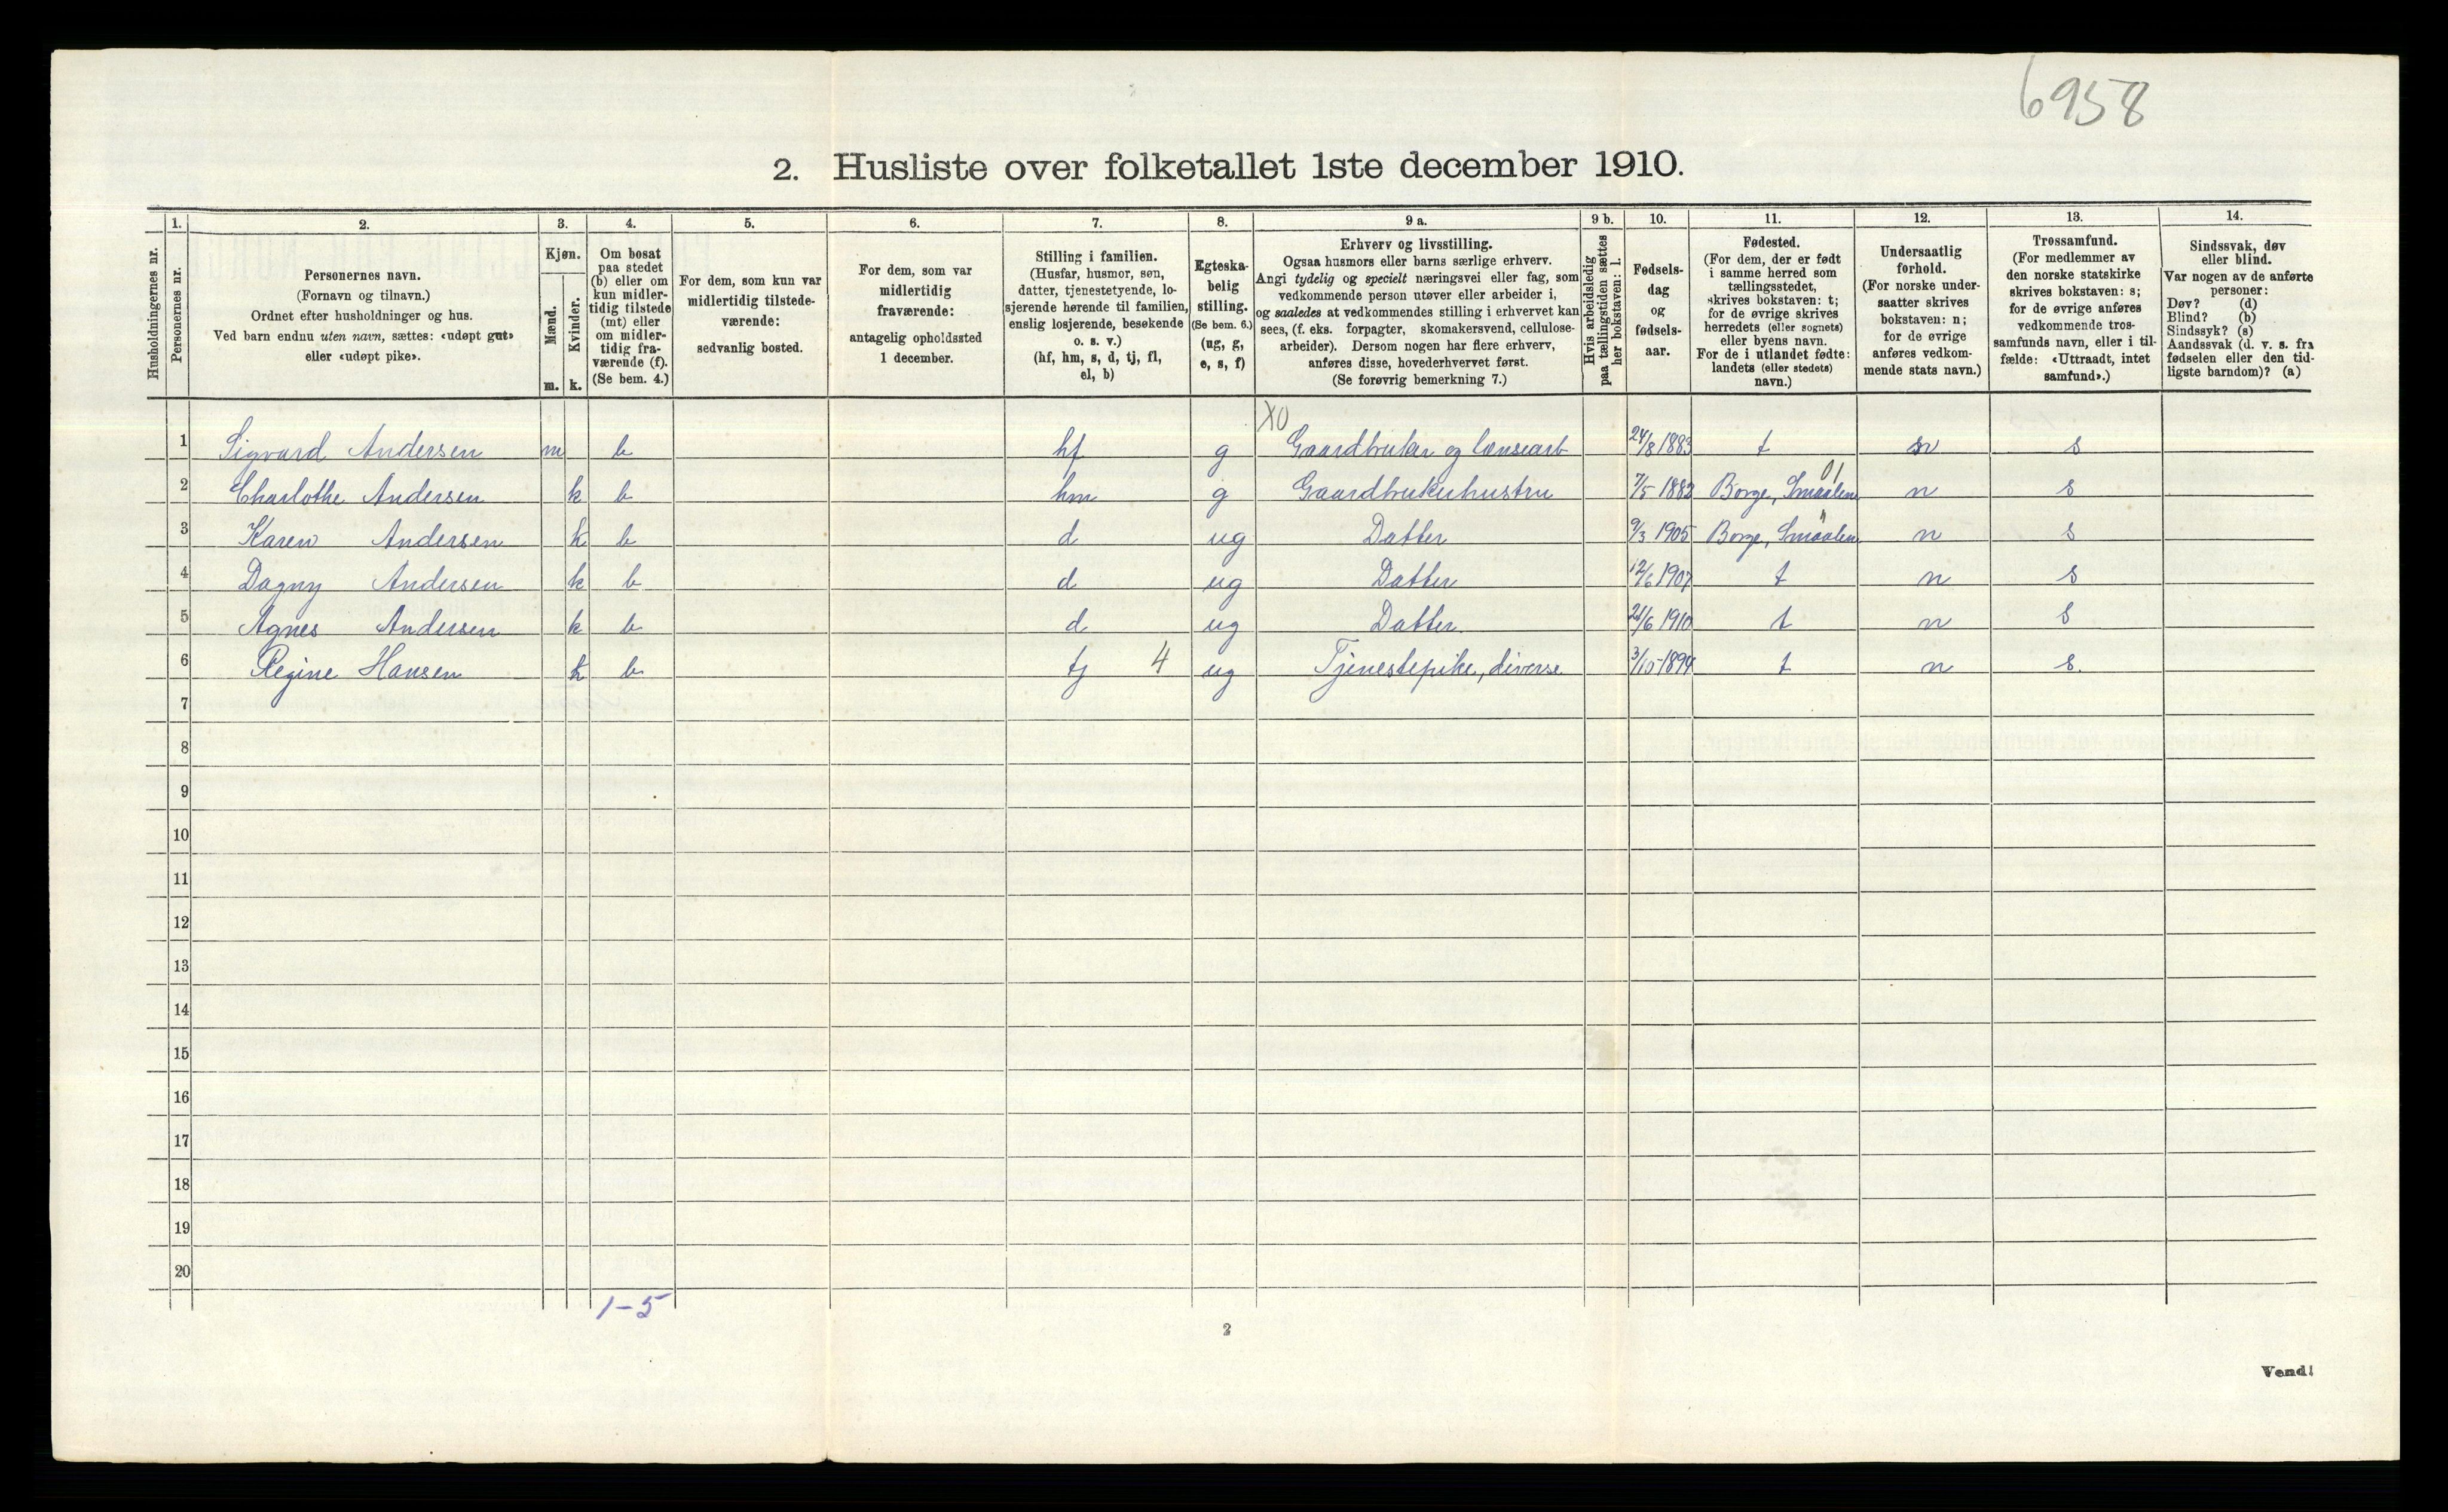 6958
2. Husliste over folketallet 1ste december 1910.
1. 2. 3. 4. 5. 6. 7. 8. 9 a. 9 b. 10. 11. 12. 13. 14.
Husholdningernes nr.
Personernes nr.
Personernes navn.
(Fornavn og tilnavn.)
Ordnet efter husholdninger og hus.
Ved barn endnu uten navn, sættes: «udøpt gut»
eller «udøpt pike».
Kjøn.
Mænd.
Kvinder.
m. k.
Om bosat
paa stedet
(b) eller om
kun midler-
tidig tilstede
(mt) eller
om midler-
tidig fra-
værende (f).
(Se bem. 4.)
For dem, som kun var
midlertidig tilstede-
værende:
sedvanlig bosted.
For dem, som var
midlertidig
fraværende:
antagelig opholdssted
1 december.
Stilling i familien.
(Husfar, husmor, søn,
datter, tjenestetyende, lo-
sjerende hørende til familien,
enslig losjerende, besøkende
o. s. v.)
(hf, hm, s, d, tj, fl,
el, b)
Egteska-
belig
stilling.
(Se bem. 6.)
(ug, g,
e, s, f)
Erhverv og livsstilling.
Ogsaa husmors eller barns særlige erhverv.
Angi tydelig og specielt næringsvei eller fag, som
vedkommende person utøver eller arbeider i,
og saaledes at vedkommendes stilling i erhvervet kan
sees, (f. eks. forpagter, skomakersvend, cellulose-
arbeider). Dersom nogen har flere erhverv,
anføres disse, hovederhvervet først.
(Se forøvrig bemerkning 7.)
Hvis arbeidsledig
paa tællingstiden sættes
her bokstaven: l.
Fødsels-
dag
og
fødsels-
aar.
Fødested.
(For dem, der er født
i samme herred som
tællingsstedet,
skrives bokstaven: t;
for de øvrige skrives
herredets (eller sognets)
eller byens navn.
For de i utlandet fødte:
landets (eller stedets)
navn.)
Undersaatlig
forhold.
(For norske under-
saatter skrives
bokstaven: n;
for de øvrige
anføres vedkom-
mende stats navn.)
Trossamfund.
(For medlemmer av
den norske statskirke
skrives bokstaven: s;
for de øvrige anføres
vedkommende tros-
samfunds navn, eller i til-
fælde: «Uttraadt, intet
samfund».)
Sindssvak, døv
eller blind.
Var nogen av de anførte
personer:
Døv? (d)
Blind? (b)
Sindssyk? (s)
Aandssvak (d. v. s. fra
fødselen eller den tid-
ligste barndom)? (a)
X0
1 Sigvard Andersen m b hf g Gaardbruker og lænsearb 24/8 1883 t n s
01
2 Charlothe Andersen k b hm g Gaardbrukerhustru 7/5 1882 Borge, Smaalen n s
"
3 Karen Andersen k b d ug Datter 9/3 1905 Borge, Smaalen n s
4 Dagny Andersen k b d ug Datter 12/6 1907 t n s
5 Agnes Andersen k b d ug Datter 21/6 1910 t n s
6 Regine Hansen k b tj 4 ug Tjenestepike, diverse 3/10-1894 t n s.
7
8
9
10
11
12
13
14
15
16
17
18
19
20
1-5
2
Vend!